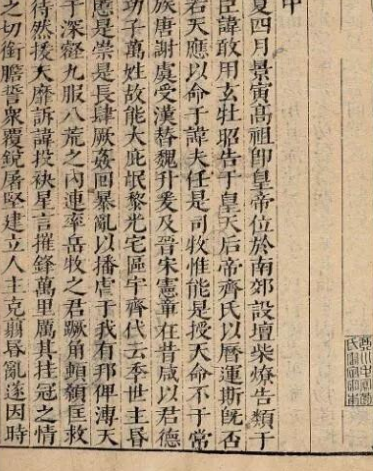 中
夏四月景寅高祖卽皇帝位於南郊設壇柴燎告類于
臣諱敢用玄牡昭告于皇天后帝齊氏以曆運斯旣否
若天應以命于諱夫任是司牧惟能是授天命不于常
族唐謝虞受漢替魏升爰及晉宋憲章在昔咸以君德
功子萬姓故能大庇氓黎光宅區宇齊代云季世主昬
慝是崇是長肆厥姦回暴亂以播虐于我有邦俾溥天
于深壑九服八荒之內連率岳牧之君蹶角頓顙匡救
待然援天靡訴諱投袂星言摧鋒萬里厲其挂冠之情
之切銜膽誓衆覆銳屠堅建立人主克翦昬亂遂因時